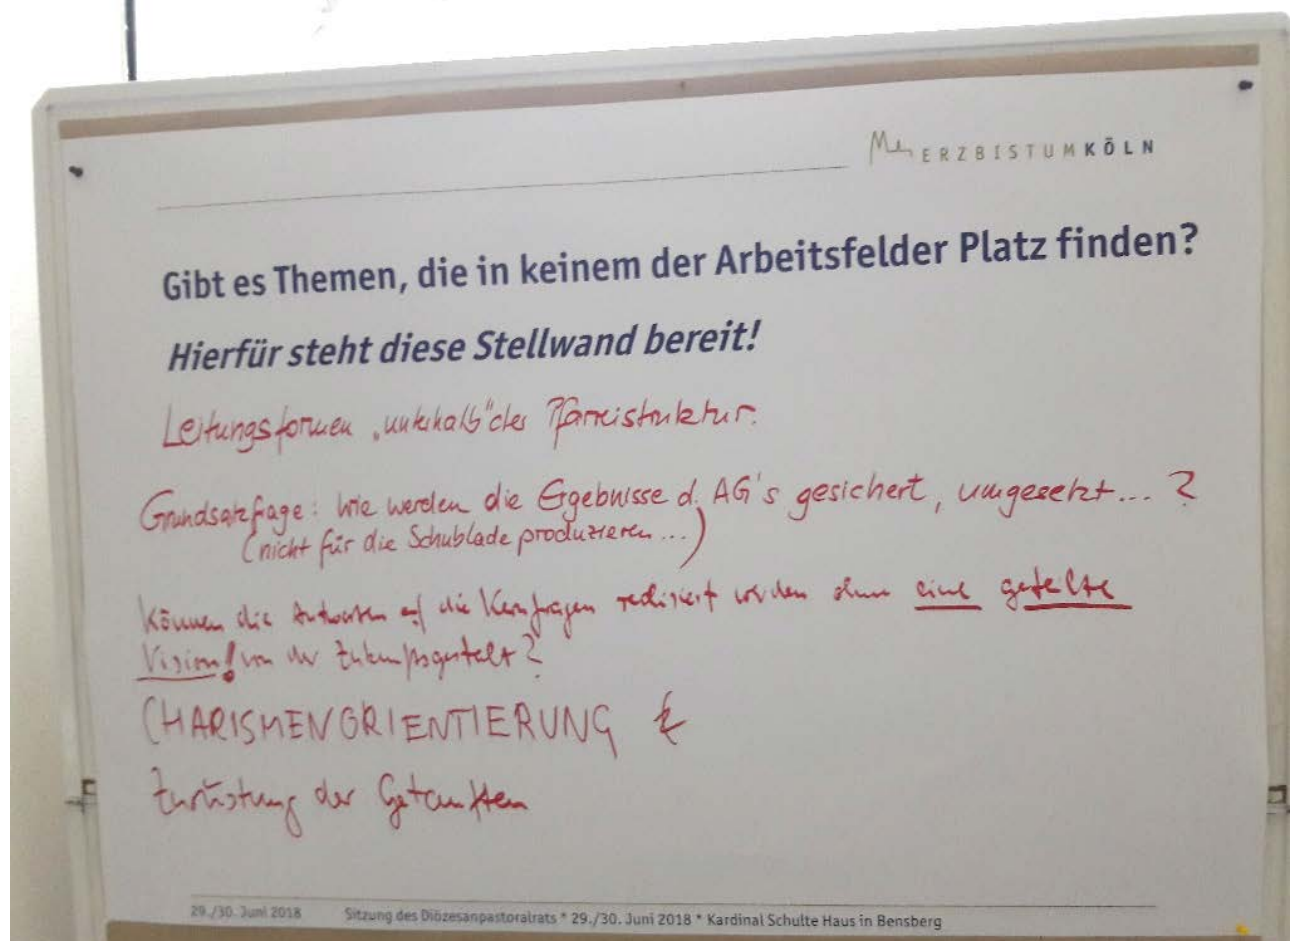 ERZBISTUMKÖLN
Gibt es Themen, die in keinem der Arbeitsfelder Platz finden?
Hierfür steht diese Stellwand bereit!
Leitungsformen „unterhalb" der Pfarreistruktur.
Grundsatzfrage: Wie werden die Ergebnisse d. AG's gesichert, umgesetzt... ?
(nicht für die Schublade produzieren...)
Können die Antworten auf die Kernfragen realisiert werden ohne eine geteilte
Vision! von der Zukunftsgestalt?
CHARISMENORIENTIERUNG &
Zurüstung der Getauften
29./30. Juni 2018 Sitzung des Diözesanpastoralrats * 29./30. Juni 2018 * Kardinal Schulte Haus in Bensberg